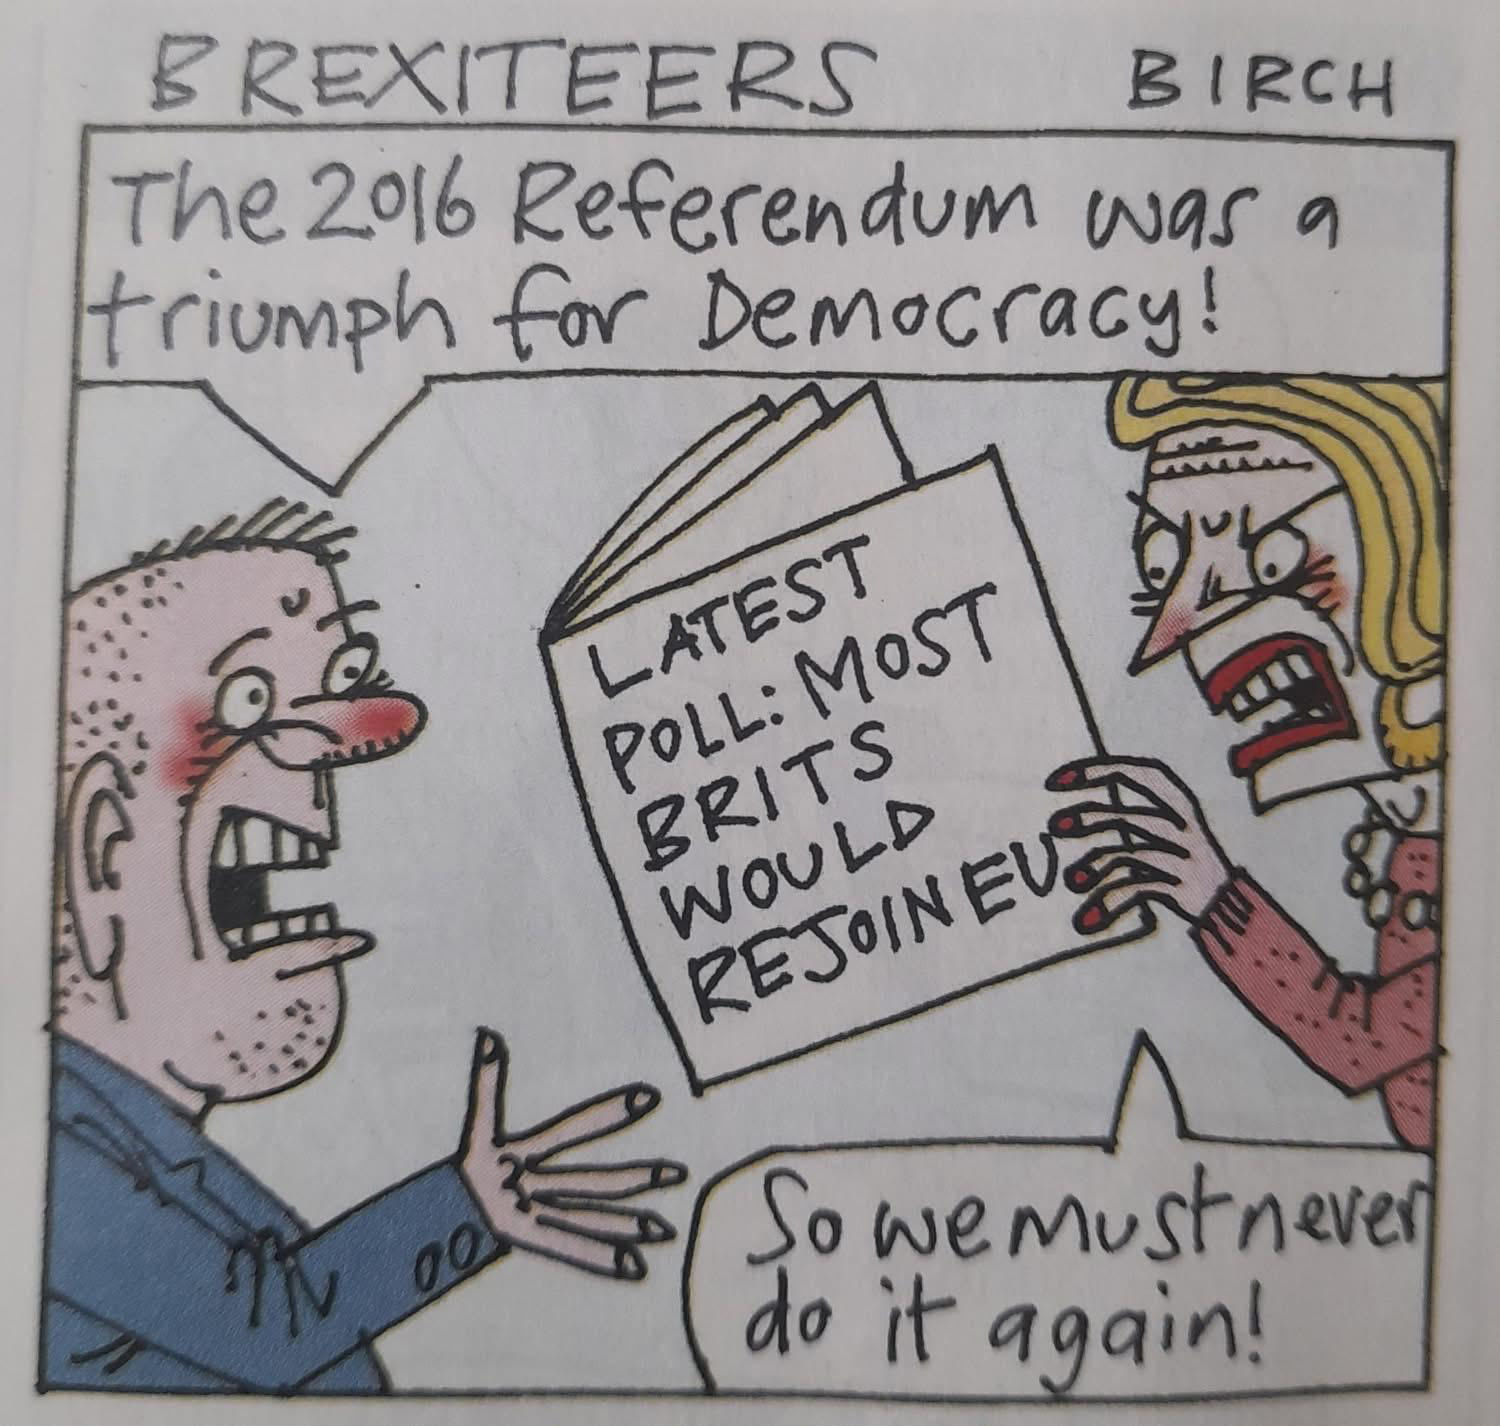 BREXITEERS BIRCH
The 2016 Referendum was a
triumph for Democracy!
LATEST
POLL: MOST
BRITS
WOULD
REJOIN EU
So we must never
do it again!